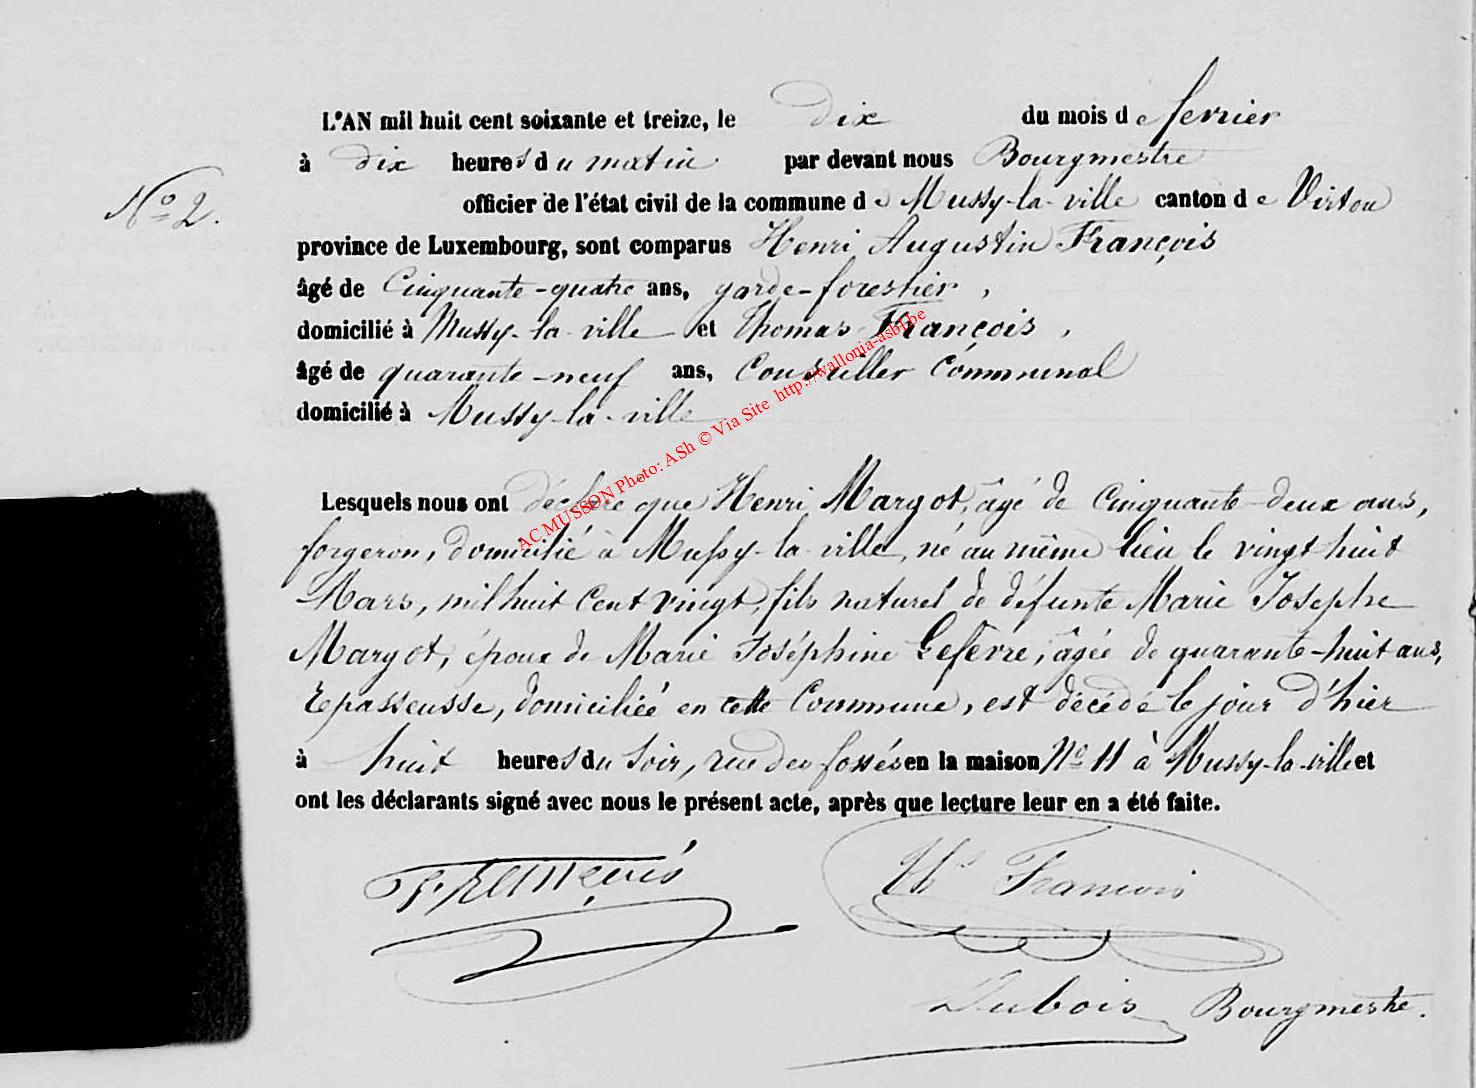 L'AN mil huit cent soixante et treize, le dix du mois de ferrier
à dix heures du matin par devant nous Bourgmestre
N° 2. officier de l'état civil de la commune de Mussy-la-ville canton de Virton
province de Luxembourg, sont comparus Henri Augustin François
âgé de Cinquante-quatre ans, garde-forestier,
domicilié à Mussy-la-ville et Thomas François,
âgé de quarante-neuf ans, Conseiller Communal
domicilié à Mussy-la-ville
AC MUSSON Photo: ASh © Via Site http://wallonia-asbl.be
Lesquels nous ont déclaré que Henri Margot, âgé de Cinquante-deux ans,
forgeron, domicilié à Mussy-la-ville, né au même lieu le vingt huit
Mars, mil huit cent vingt, fils naturel de défunte Marie Josephe
Margot, époux de Marie Joséphine Lefèvre, âgée de quarante-huit ans,
Repasseusse, domiciliée en cette Commune, est décédé le jour d'hier
à huit heures du soir, rue des fossés en la maison N° 11 à Mussy-la-ville et
ont les déclarants signé avec nous le présent acte, après que lecture leur en a été faite.
François Ths François
Dubois Bourgmestre.